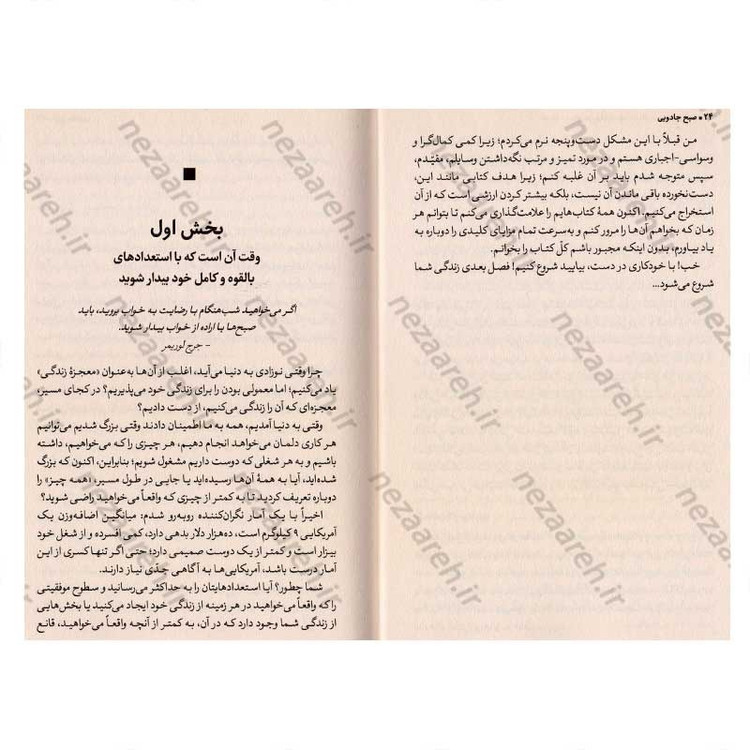 ۲۴ • صبح جادویی
من قبلاً با این مشکل دست‌وپنجه نرم می‌کردم؛ زیرا کمی کمال‌گرا و
وسواسی-اجباری هستم و در مورد تمیز و مرتب نگه‌داشتن وسایلم، مقیّدم،
سپس متوجه شدم باید بر آن غلبه کنم؛ زیرا هدف کتابی مانند این،
دست‌نخورده باقی ماندن آن نیست، بلکه بیشتر کردن ارزشی است که از آن
استخراج می‌کنیم. اکنون همهٔ کتاب‌هایم را علامت‌گذاری می‌کنم تا بتوانم هر
زمان که بخواهم آن‌ها را مرور کنم و به‌سرعت تمام مزایای کلیدی را دوباره به
یاد بیاورم، بدون اینکه مجبور باشم کلّ کتاب را بخوانم.
خب! با خودکاری در دست، بیایید شروع کنیم! فصل بعدی زندگی شما
شروع می‌شود...
بخش اول
وقت آن است که با استعدادهای
بالقوه و کامل خود بیدار شوید
اگر می‌خواهید شب‌هنگام با رضایت به خواب بروید، باید
صبح‌ها با اراده از خواب بیدار شوید.
- جرج لوریمر
چرا وقتی نوزادی به دنیا می‌آید، اغلب از آن‌ها به‌عنوان «معجزهٔ زندگی»
یاد می‌کنیم؛ اما معمولی بودن را برای زندگی خود می‌پذیریم؟ در کجای مسیر،
معجزه‌ای که آن را زندگی می‌کنیم، از دست دادیم؟
وقتی به دنیا آمدیم، همه به ما اطمینان دادند وقتی بزرگ شدیم می‌توانیم
هر کاری دلمان می‌خواهد انجام دهیم، هر چیزی را که می‌خواهیم، داشته
باشیم و به هر شغلی که دوست داریم مشغول شویم؛ بنابراین، اکنون که بزرگ
شده‌اید، آیا به همهٔ آن‌ها رسیده‌اید یا جایی در طول مسیر، «همه چیز» را
دوباره تعریف کردید تا به کمتر از چیزی که واقعاً می‌خواهید راضی شوید؟
اخیراً با یک آمار نگران‌کننده روبه‌رو شدم: میانگین اضافه‌وزن یک
آمریکایی ۹ کیلوگرم است، ده‌هزار دلار بدهی دارد، کمی افسرده و از شغل خود
بیزار است و کمتر از یک دوست صمیمی دارد؛ حتی اگر تنها کسری از این
آمار درست باشد، آمریکایی‌ها به آگاهی جدّی نیاز دارند.
شما چطور؟ آیا استعدادهایتان را به حداکثر می‌رسانید و سطوح موفقیتی
را که واقعاً می‌خواهید در هر زمینه از زندگی خود ایجاد می‌کنید یا بخش‌هایی
از زندگی شما وجود دارد که در آن، به کمتر از آنچه واقعاً می‌خواهید، قانع
nezaareh.ir
nezaareh.ir
nezaareh.ir
nezaareh.ir
nezaareh.ir
nezaareh.ir
nezaareh.ir
nezaareh.ir